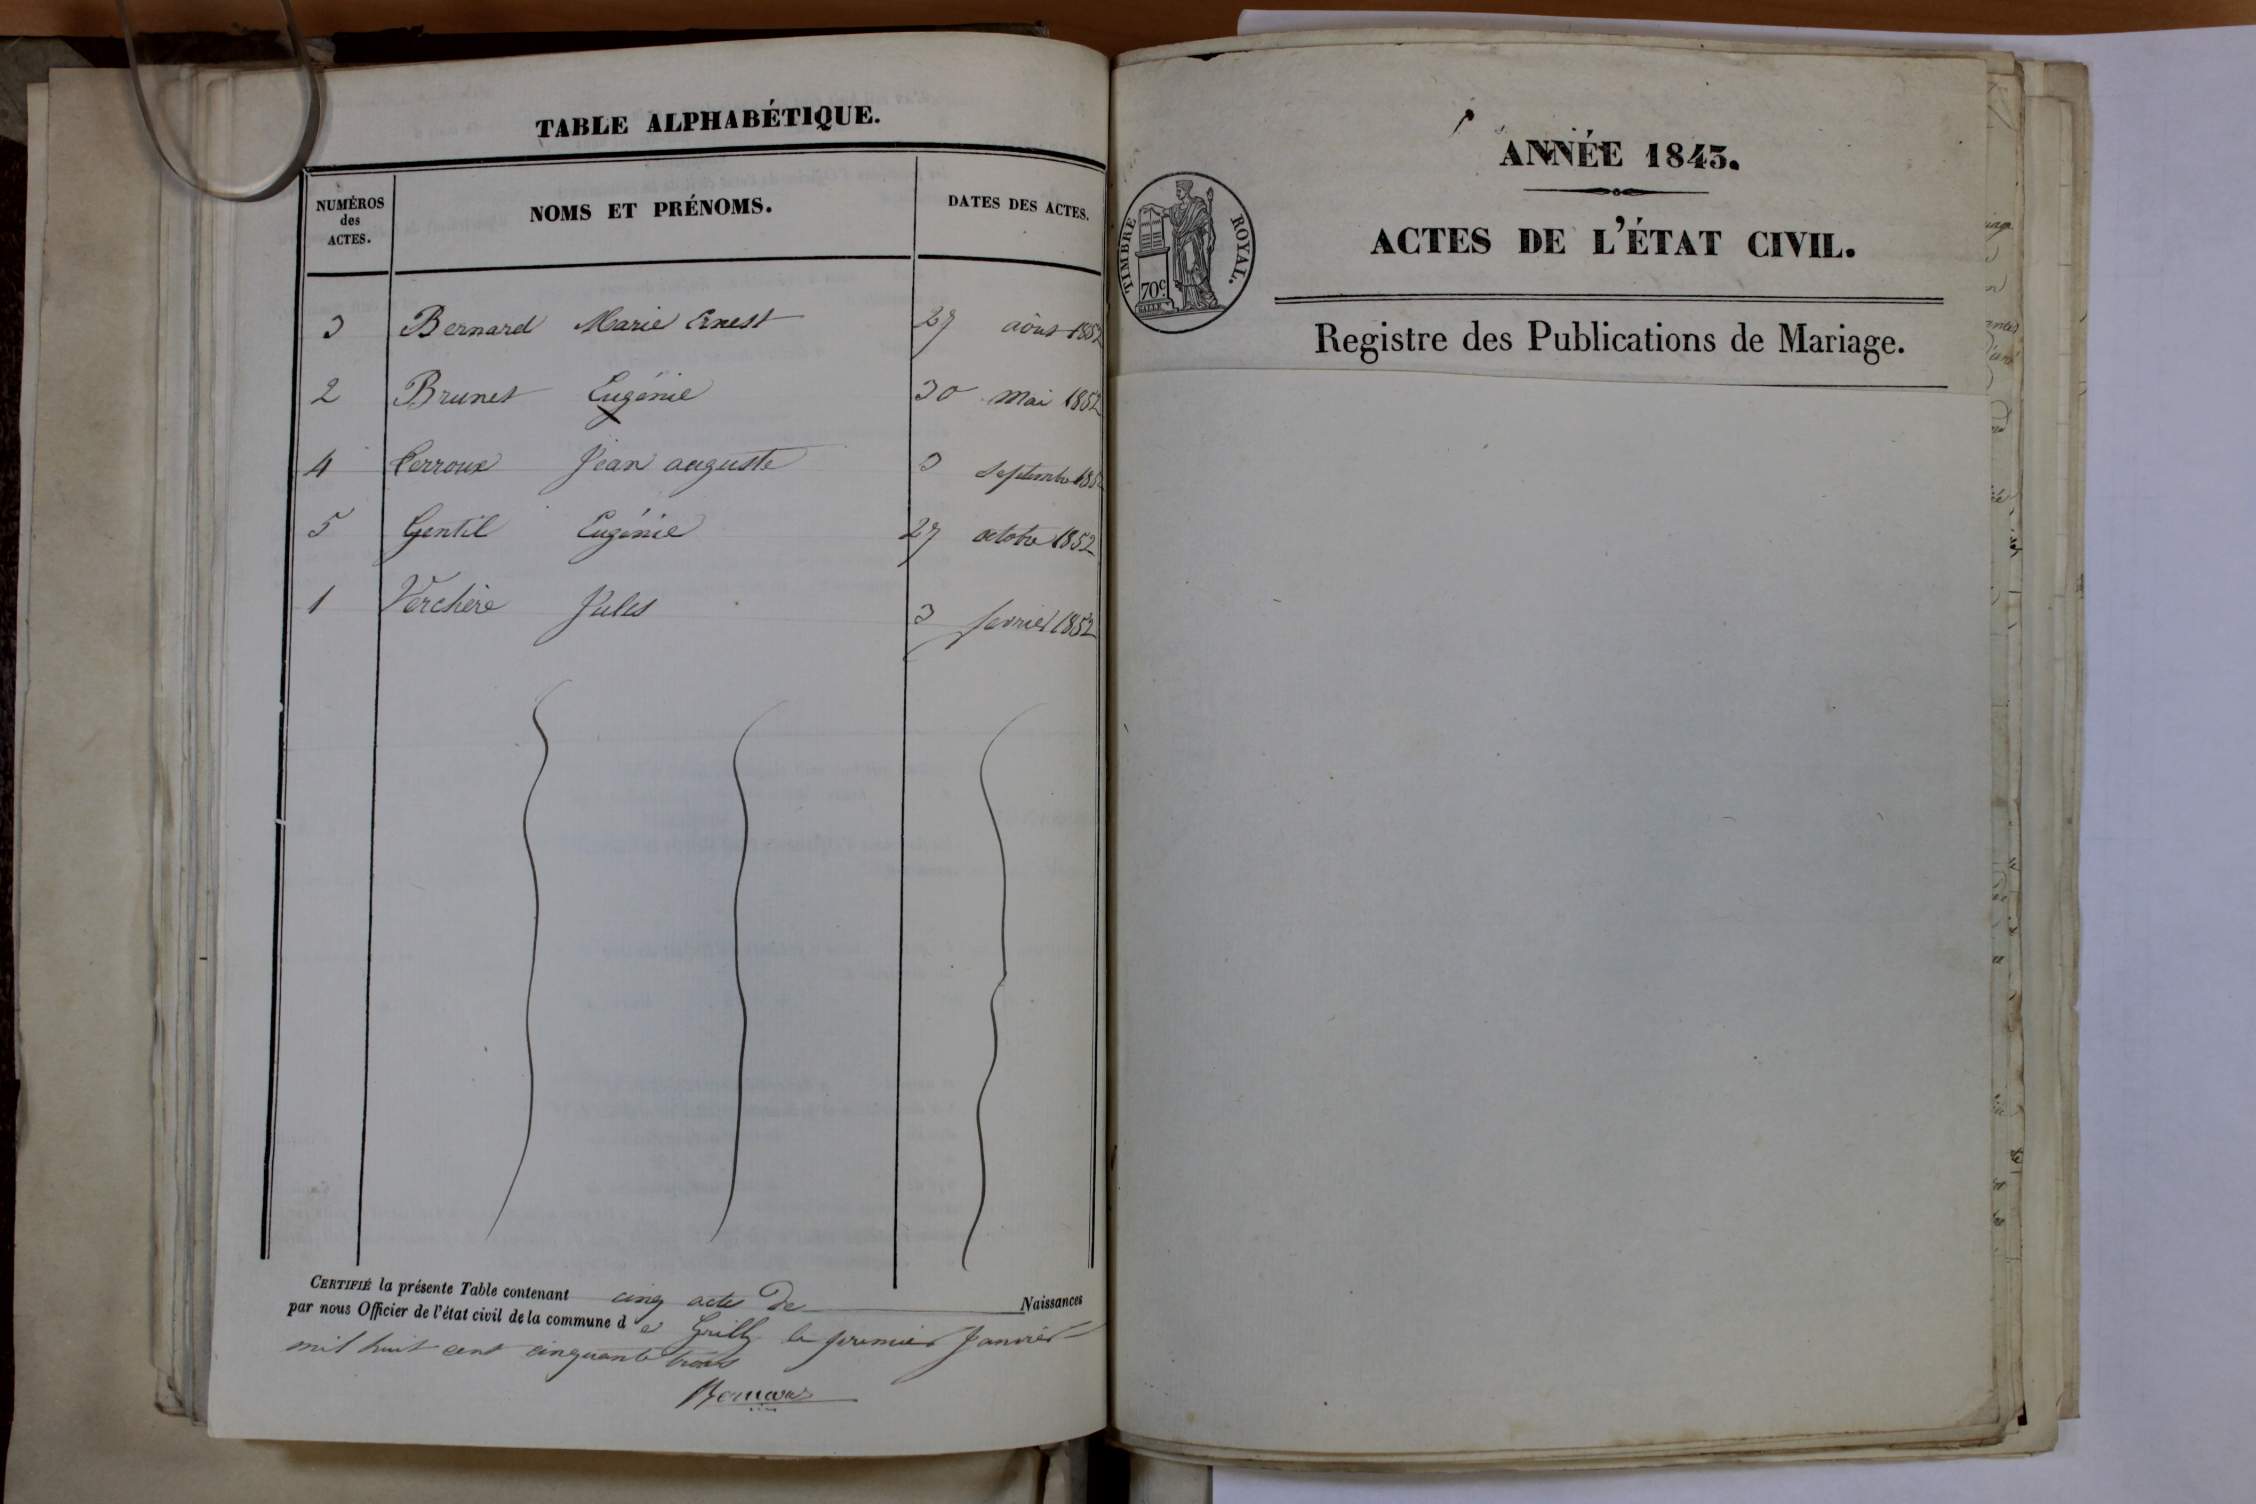 TABLE ALPHABÉTIQUE.
NUMÉROS des ACTES. NOMS ET PRÉNOMS. DATES DES ACTES.
3 Bernard Marie Ernest 27 août 1852
2 Brunet Eugénie 30 mai 1852
4 Perroux Jean auguste 3 septembre 185
5 Gentil Eugénie 27 octobre 1852
1 Verchère Jules 3 fevrier 1852
CERTIFIÉ la présente Table contenant cinq actes De Naissances
par nous Officier de l'état civil de la commune d e Grilly le premier Janvier
mil huit cent cinquante trois
ANNÉE 1843.
ACTES DE L'ÉTAT CIVIL.
TIMBRE ROYAL.
70c
Registre des Publications de Mariage.